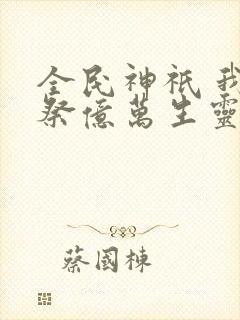 全民神祇 我
祭億萬生靈
蔡國棟